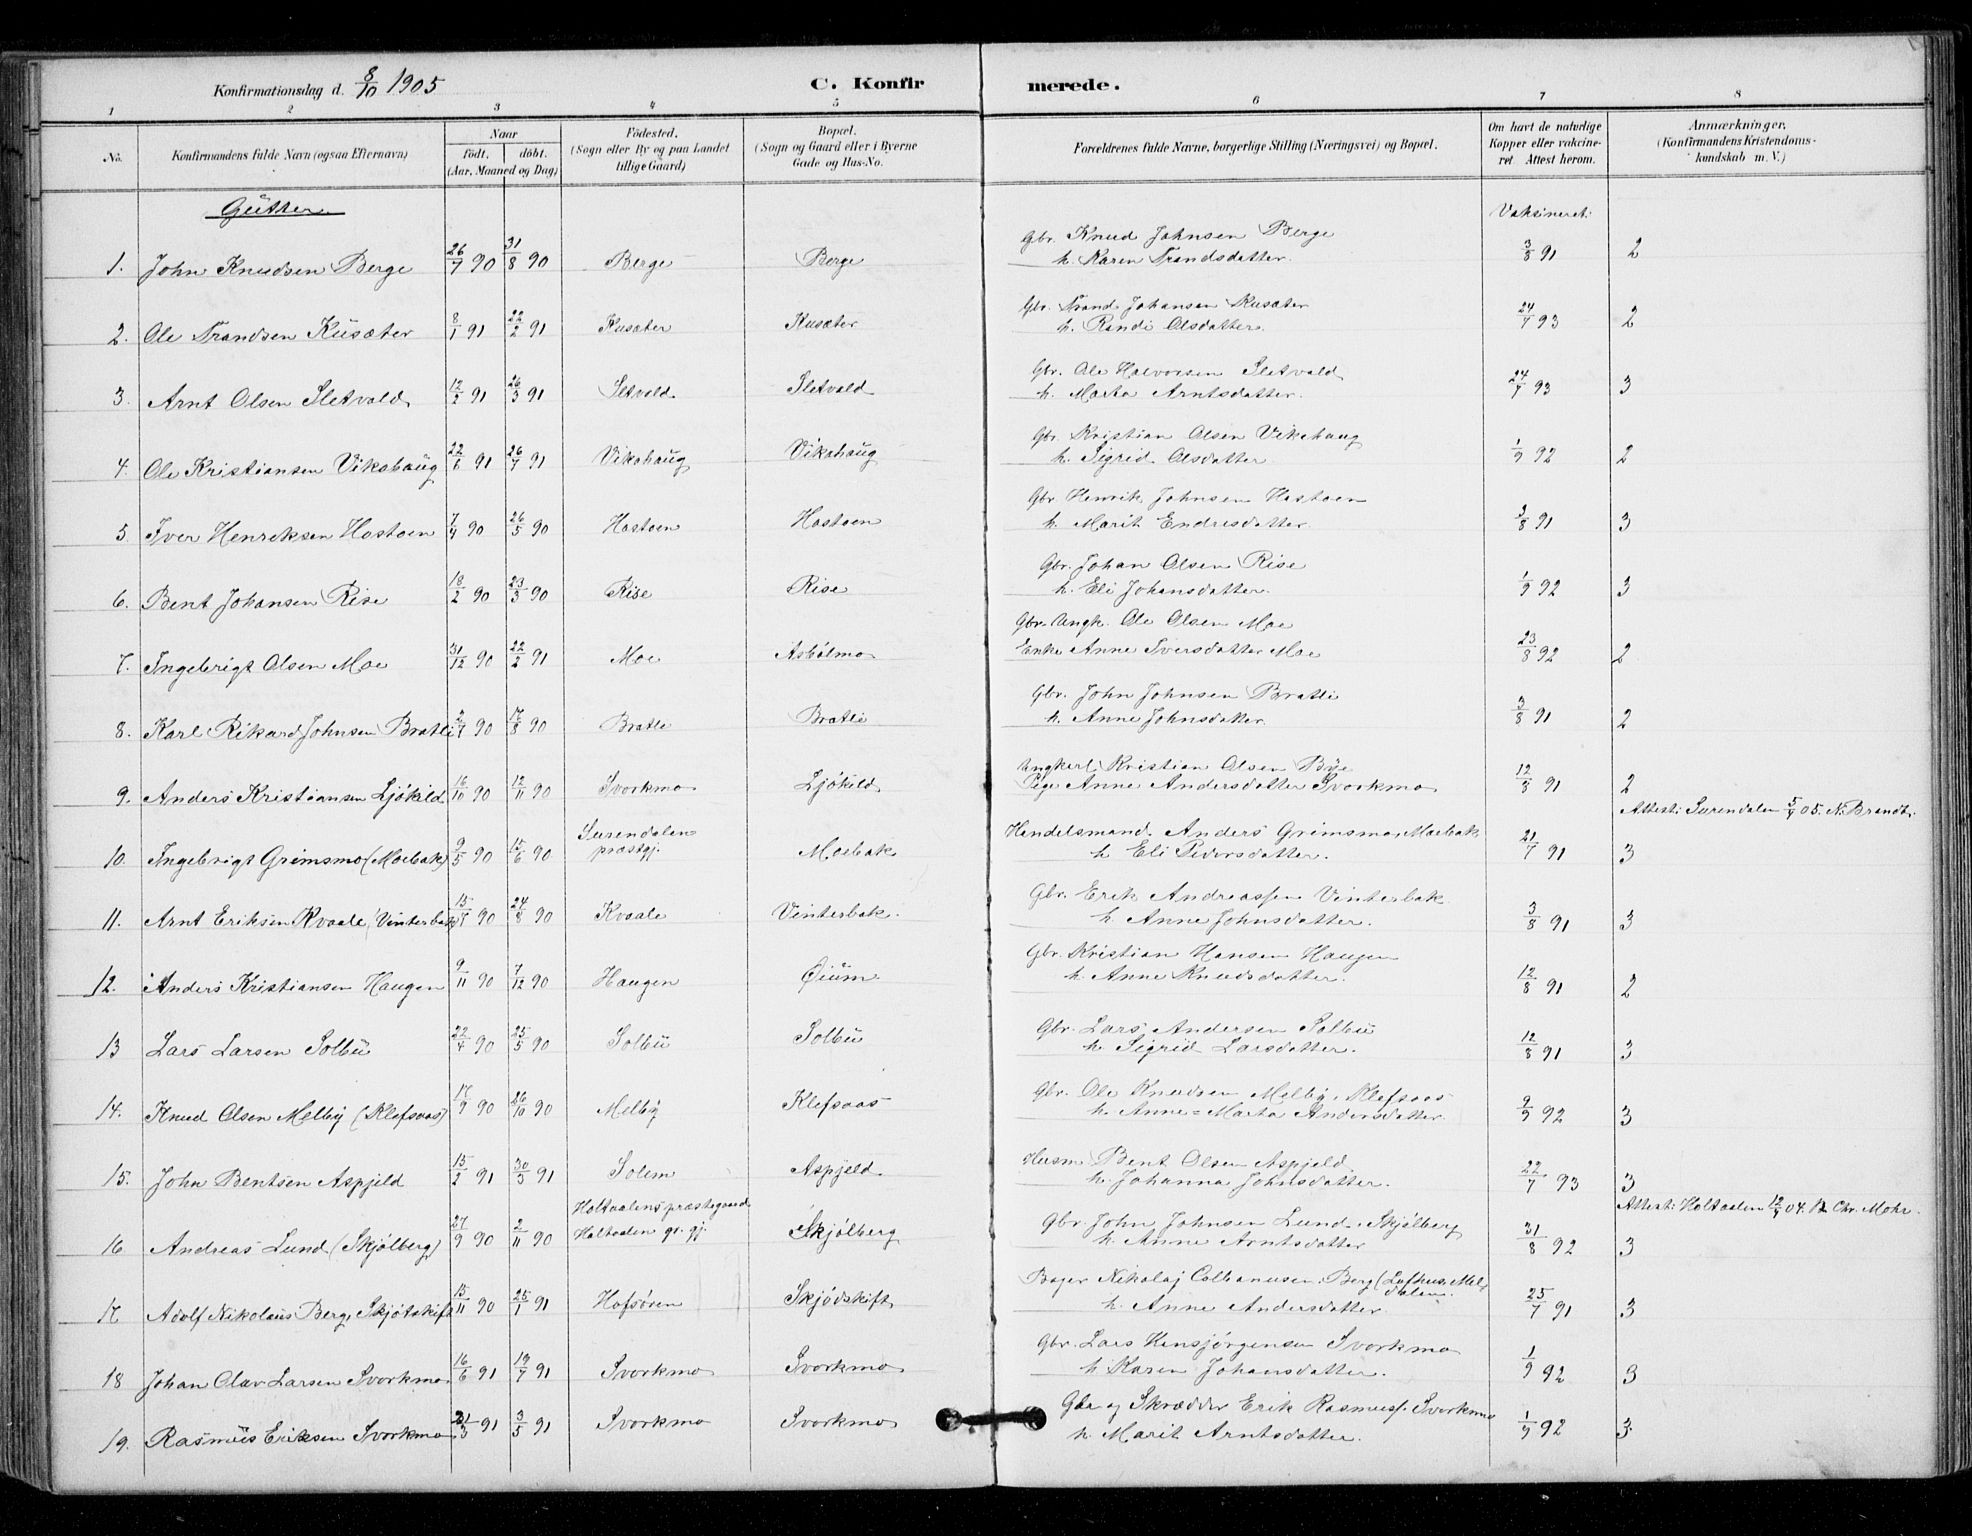 Konfirmationsdag d. 8/10 1905 C. Konfirmerede.
1 2 3 4 5 6 7 8
No. Konfirmandens fulde Navn (ogsaa Efternavn) Naar födt. döbt. (Aar, Maaned og Dag) Födested. (Sogn eller By og paa Landet tillige Gaard) Bopæl. (Sogn og Gaard eller i Byerne Gade og Hus-No. Forældrenes fulde Navne, borgerlige Stilling (Næringsvei) og Bopæl. Om havt de naturlige Kopper eller vakcineret. Attest herom. Anmærkninger. (Konfirmandens Kristendomskundskab m. V.)
Gutter. Vaksineret:
Gbr. Knud Johnsen Berge
1. John Knudsen Berge 26/7 90 31/8 90 Berge Berge h. Karen Trondsdatter. 3/8 91 2
Gbr. Trond Johansen Kusæter
2. Ole Trondsen Kusæter 8/1 91 22/2 91 Kusæter Kusæter h. Randi Olsdatter. 24/7 93 2
Gbr. Ole Halvorsen Sletvold
3. Arnt Olsen Sletvold 12/2 91 26/3 91 Sletvold Sletvold h. Marta Arntsdatter. 24/7 93 3
Gbr. Kristian Olsen Vikahaug
4. Ole Kristiansen Vikahaug 22/6 91 26/7 91 Vikahaug Vikahaug h. Sigrid Olsdatter 1/9 92 2
Gbr. Henrik Johnsen Hostoen
5. Iver Henriksen Hostoen 7/4 90 26/5 90 Hostoen Hostoen h. Marit Endresdatter. 3/8 91 3
Gbr. Johan Olsen Rise
6. Bent Johansen Rise 18/2 90 23/3 90 Rise Rise h. Eli Johansdatter. 1/9 92 3
Gbr. Ungk. Ole Olsen Moe
7. Ingebrigt Olsen Moe 31/12 90 22/2 91 Moe Asbólmo Enke Anne Iversdatter Moe 23/8 92 2
Gbr. John Johnsen Bratli
8. Karl Rikard Johnsen Bratli 2/7 90 17/8 90 Bratli Bratli h. Anne Johnsdatter. 3/8 91 2
Ungkarl Kristian Olsen Bye
9. Anders Kristiansen Ljökild 16/10 90 12/11 90 Svorkmo Ljökild Pige Anne Andersdatter Svorkmo 12/8 91 2
Attest: Surendalen 5/9 05. N. Brandt.
Handelsmand Anders Grimsmo, Moebak
10. Ingebrigt Grimsmo (Moebak) 9/5 90 15/6 90 Surendalen præstgj. Moebak h. Eli Pedersdatter. 21/7 91 3
Gbr. Erik Andreassen Vinterbak
11. Arnt Eriksen Kvaale, Vinterbak 24/8 90 Kvaale Vinterbak. h. Anne Johnsdatter. 3/8 91 3
Gbr. Kristian Hansen Haugen
12. Anders Kristiansen Haugen 9/11 90 7/12 90 Haugen Øium h. Anne Knudsdatter. 12/8 91 2
Gbr. Lars Andersen Solbu
13 Lars Larsen Solbu 22/4 90 25/5 90 Solbu Solbu h. Sigrid Larsdatter. 12/8 91 3
Gbr. Ole Knudsen Melby, Klefsaas
14. Knud Olsen Melby (Klefsaas) 17/9 90 26/10 90 Melby Klefsaas h. Anne=Marta Andersdatter. 92 3
Husm Bent Olsen Aspjeld
15. John Bentsen Aspjeld 15/2 91 30/3 91 Solem Aspjeld h. Johanna Johnsdatter. 22/7 93 3
Attest: Holtaalen 12/9 04. Chr. Mohr.
Gbr. John Johnsen Lund, Skjølberg
16. Andreas Lund (Skjølberg) 27/9 90 2/11 90 Holtaalens præstegaard Holtaalen gr. gj. Skjølberg h. Anne Arntsdatter 31/8 92 3
Bager Nikolaj Colbanusen Berg (Lofhus, Meldalen.
17 Adolf Nikolaus Berg, Skjötskift 15/11 90 25/1 91 Hofsören Skjödskift h. Anne Andersdatter. 25/7 91 3
Gbr. Lars Hensjörgensen Svorkmo
18 Johan Olav Larsen Svorkmo 16/6 91 19/7 91 Svorkmo Svorkmo h. Karen Johansdatter. 1/9 92 3
Gbr. og Skrædder Erik Rasmuss. Svorkmo
19. Rasmus Eriksen Svorkmo 21/3 91 3/5 91 Svorkmo Svorkmo h. Marit Arntsdatter. 1/9 92 3.